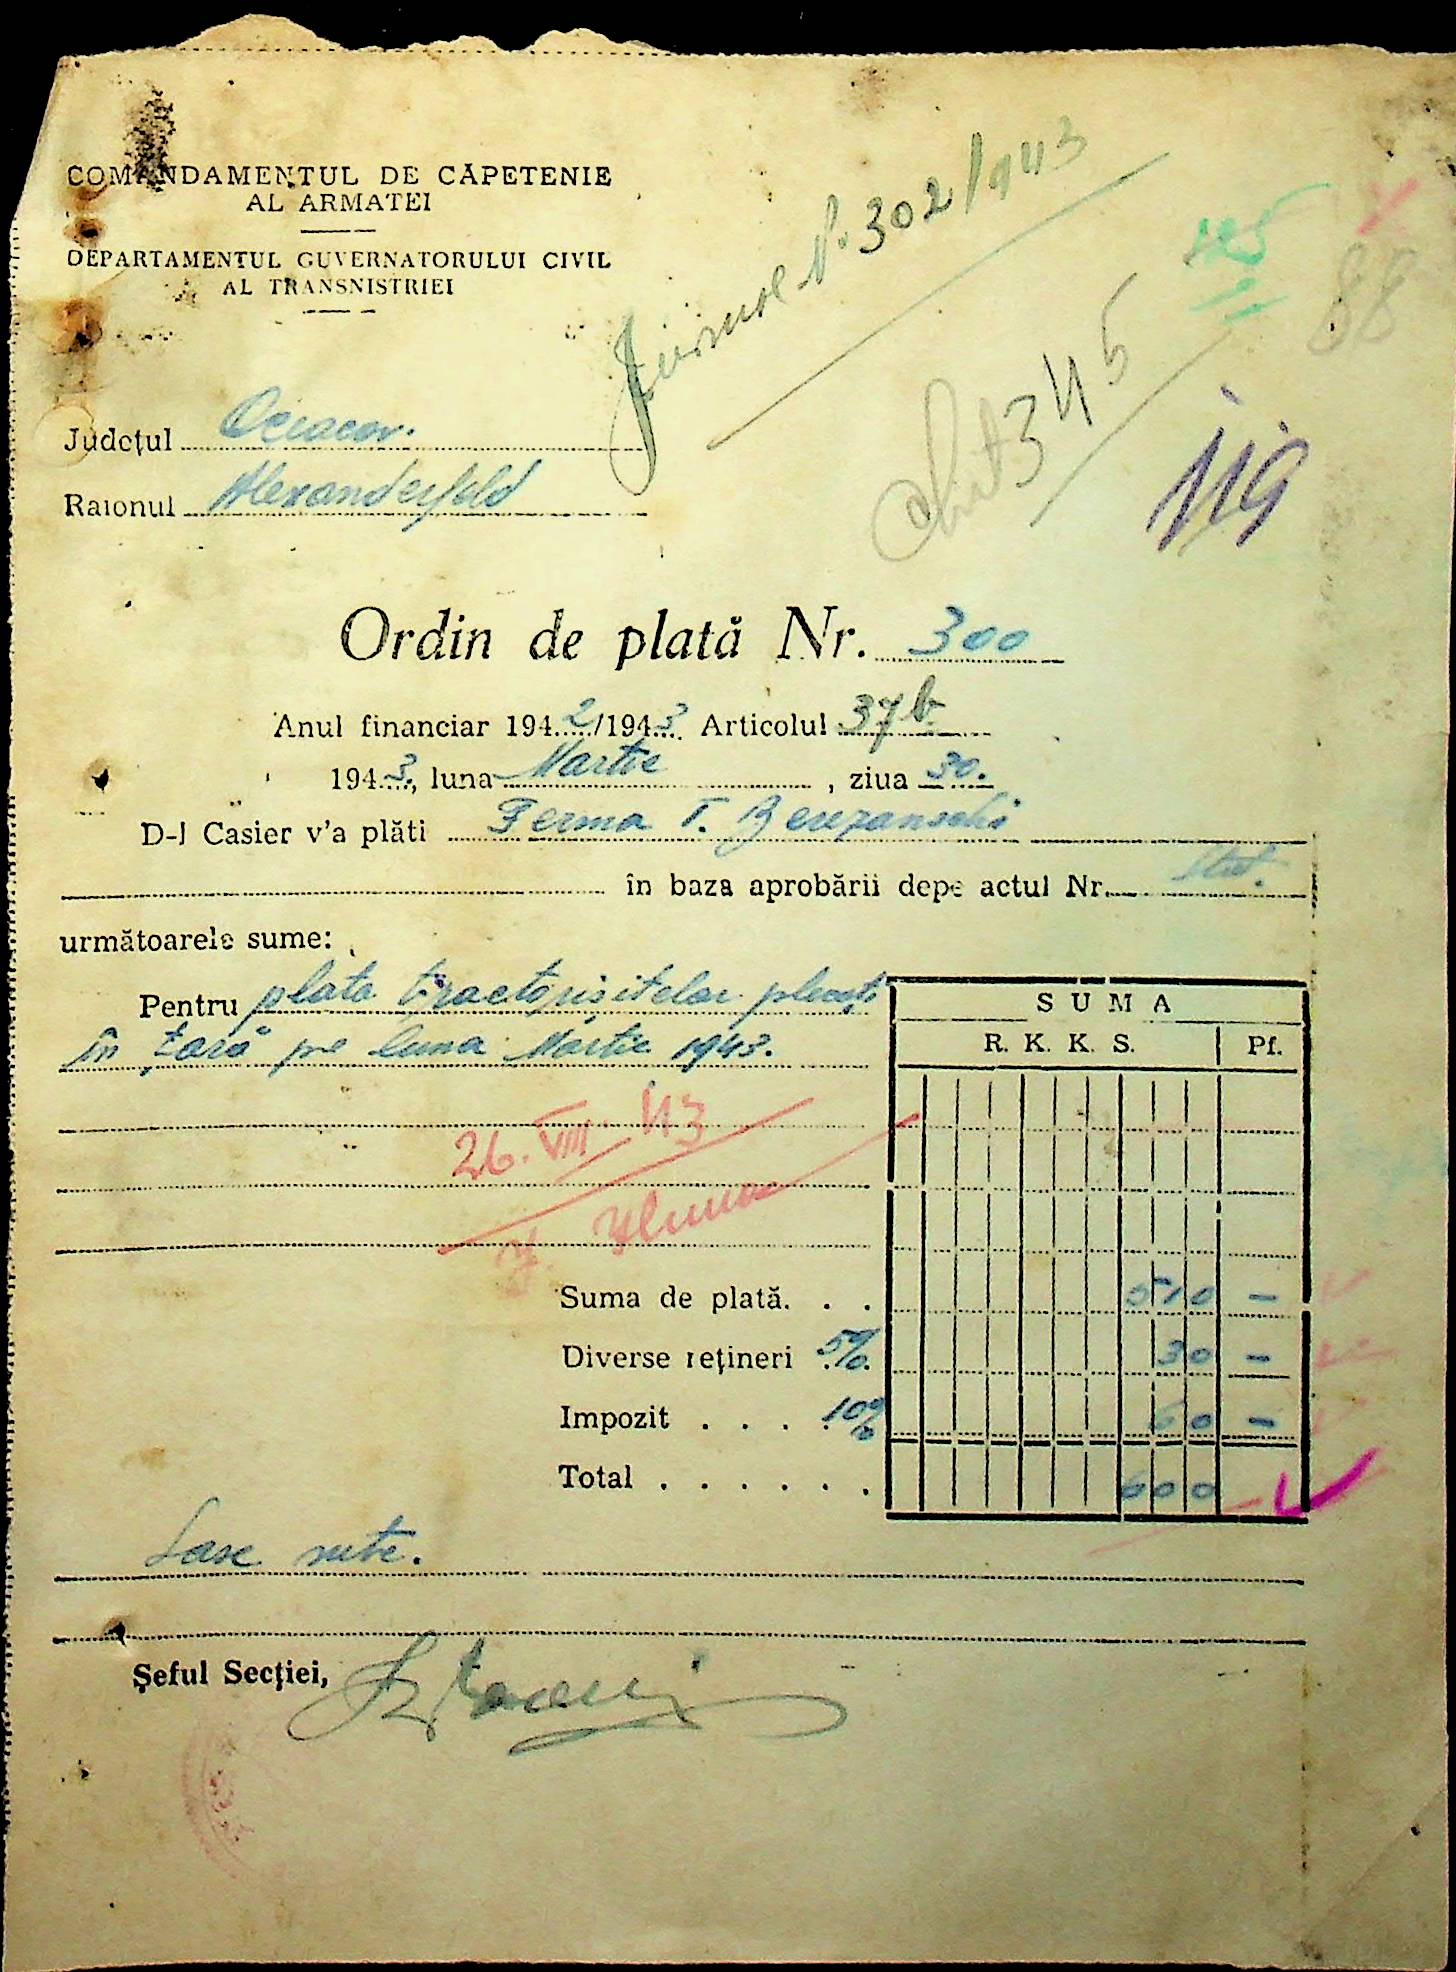 COMANDAMENTUL DE CĂPETENIE
AL ARMATEI
DEPARTAMENTUL GUVERNATORULUI CIVIL
AL TRANSNISTRIEI
Jurnal N. 302/943
125
88
345
119
Județul Oceacov.
Raionul Alexanderfeld
Ordin de plată Nr. 300
Anul financiar 1942/1943 Articolul 37 b
1943, luna Martie, ziua 30.
D-l Casier v'a plăti Ferma T. Berezanschi
în baza aprobării depe actul Nr. Stat.
următoarele sume:
Pentru plata tractoriștilor plecați
în țară pe luna Martie 1943.
SUMA
R. K. K. S. Pf.
26. VIII 43
Suma de plată. . . 510 –
Diverse rețineri 5% 30 –
Impozit . . . 10% 60 –
Total . . . . . . 600
Șase sute.
Șeful Secției,